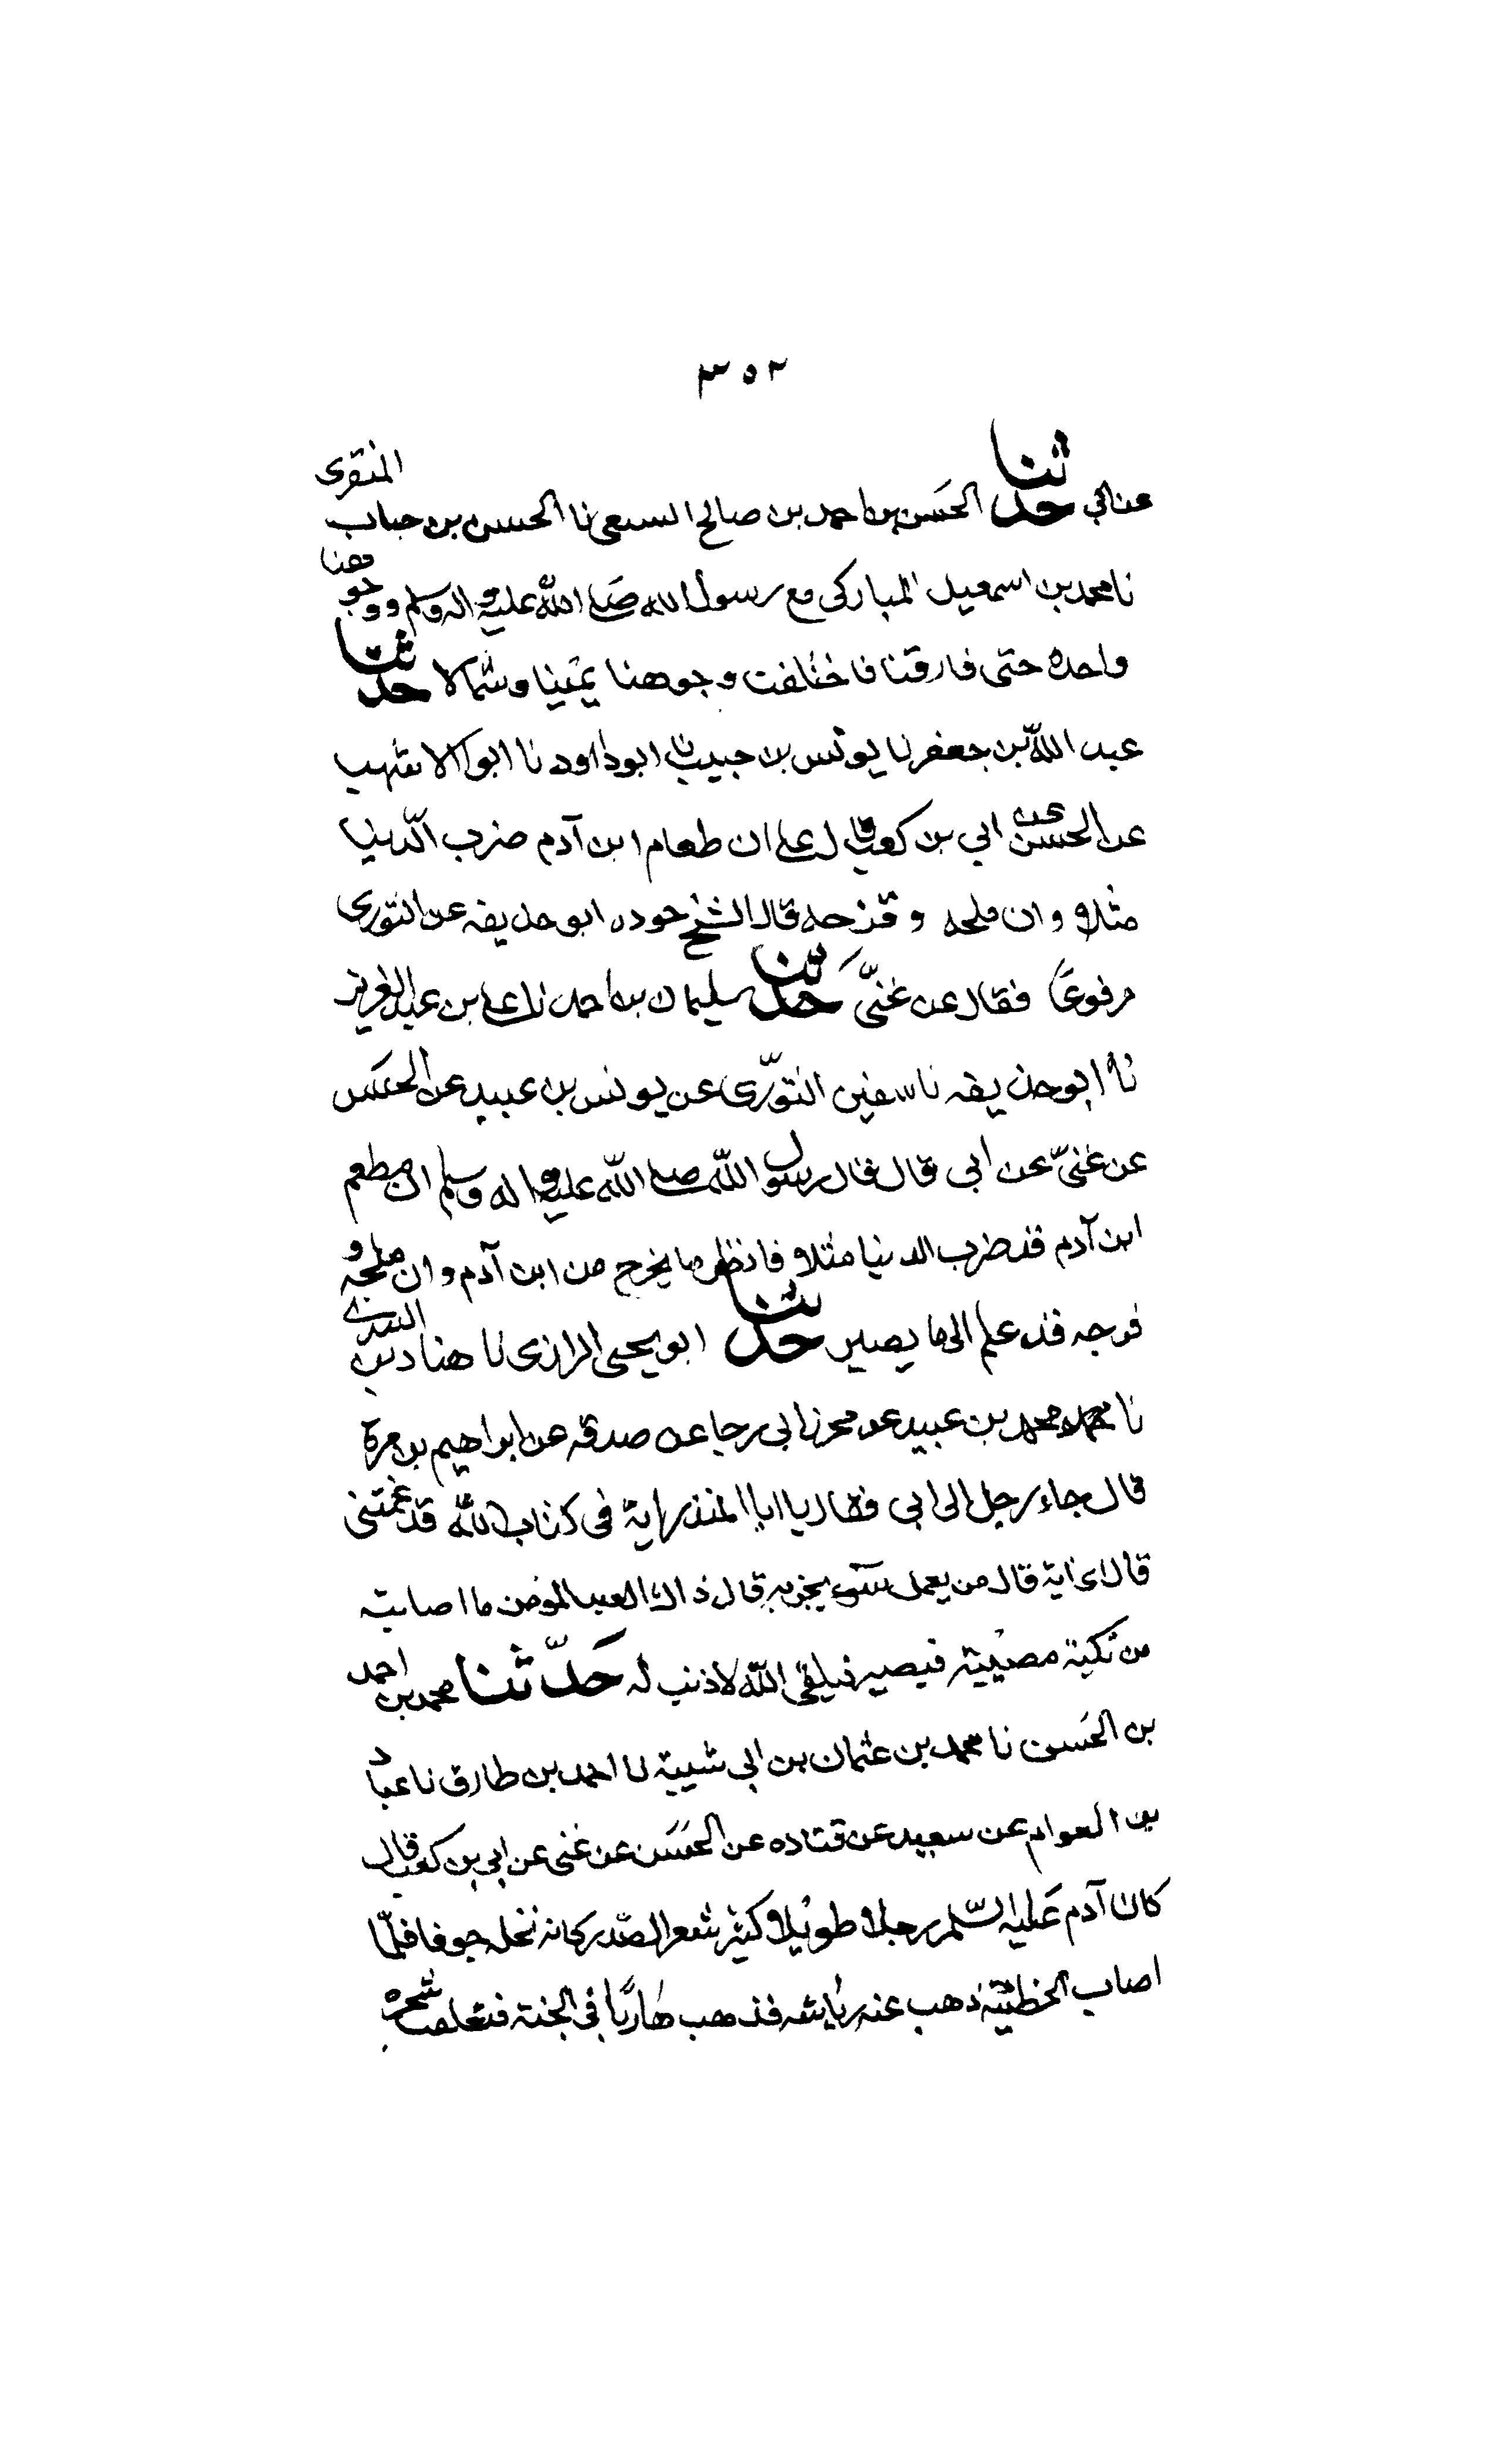 ٣٥٢
عن ابي حدثنا الحسن بن احمد بن صالح السبعى نا الحسن بن حباب المنقرى
نا محمد بن اسمعيل المباركى مع رسول الله صلى الله عليه و اله وسلم ووجوهنا
واحده حتى فارقنا فاختلفت وجوهنا يمينا وشمالا حدثنا
عبد الله بن جعفر نا يونس بن حبيب نا ابوداود نا ابو الاشهب
عن الحسن عن ابي بن كعب قال على ان طعام ابن آدم ضرب الدنيا
مثلا وان ملحه وقزحه قال الشيخ جوده ابو حذيفه عن الثورى
مرفوعًا فقال عن عُتىّ حدثنا سليمان بن احمد نا على بن عبد العزيز
نا ابو حذيفه نا سفين الثورى عن يونس بن عبيد عن الحسن
عن عتىّ عن ابى قال قال رسول الله صلى الله عليه و اله وسلم ان مطعم
ابن آدم قد ضرب الدنيا مثلا فانظر ما يخرج من ابن آدم وان ملحه و
قزحه قد علم الى ما يصير حدثنا ابو يحيى الرازى نا هناد بن السرى
نا محمد بن عبيد عن محرز ابى رجا عن صدقه عن ابراهيم بن مرة
قال جاء رجل الى ابى فقال يا ابا المنذر اية فى كتاب الله قد غمتنى
قال اى اية قال من يعمل سوء يجز به قال ذاك العبد المومن ما اصابته
من نكبة مصيبة فيصبر فيلقى الله لا ذنب له حَدّثنا محمد بن احمد
بن الحسن نا محمد بن عثمان بن ابى شيبة نا احمد بن طارق نا عباد
بن العوام عن سعيد عن قتاده عن الحسن عن عتى عن ابى بن كعب قال
كان آدم عَليه السّلم رجلا طويلا كثير شعر الصّدر كانه نخله جوفا فلمّا
اصاب الخطيئة ذهب عنه رياشه فذهب هاربًا فى الجنة فتعلقت شجره